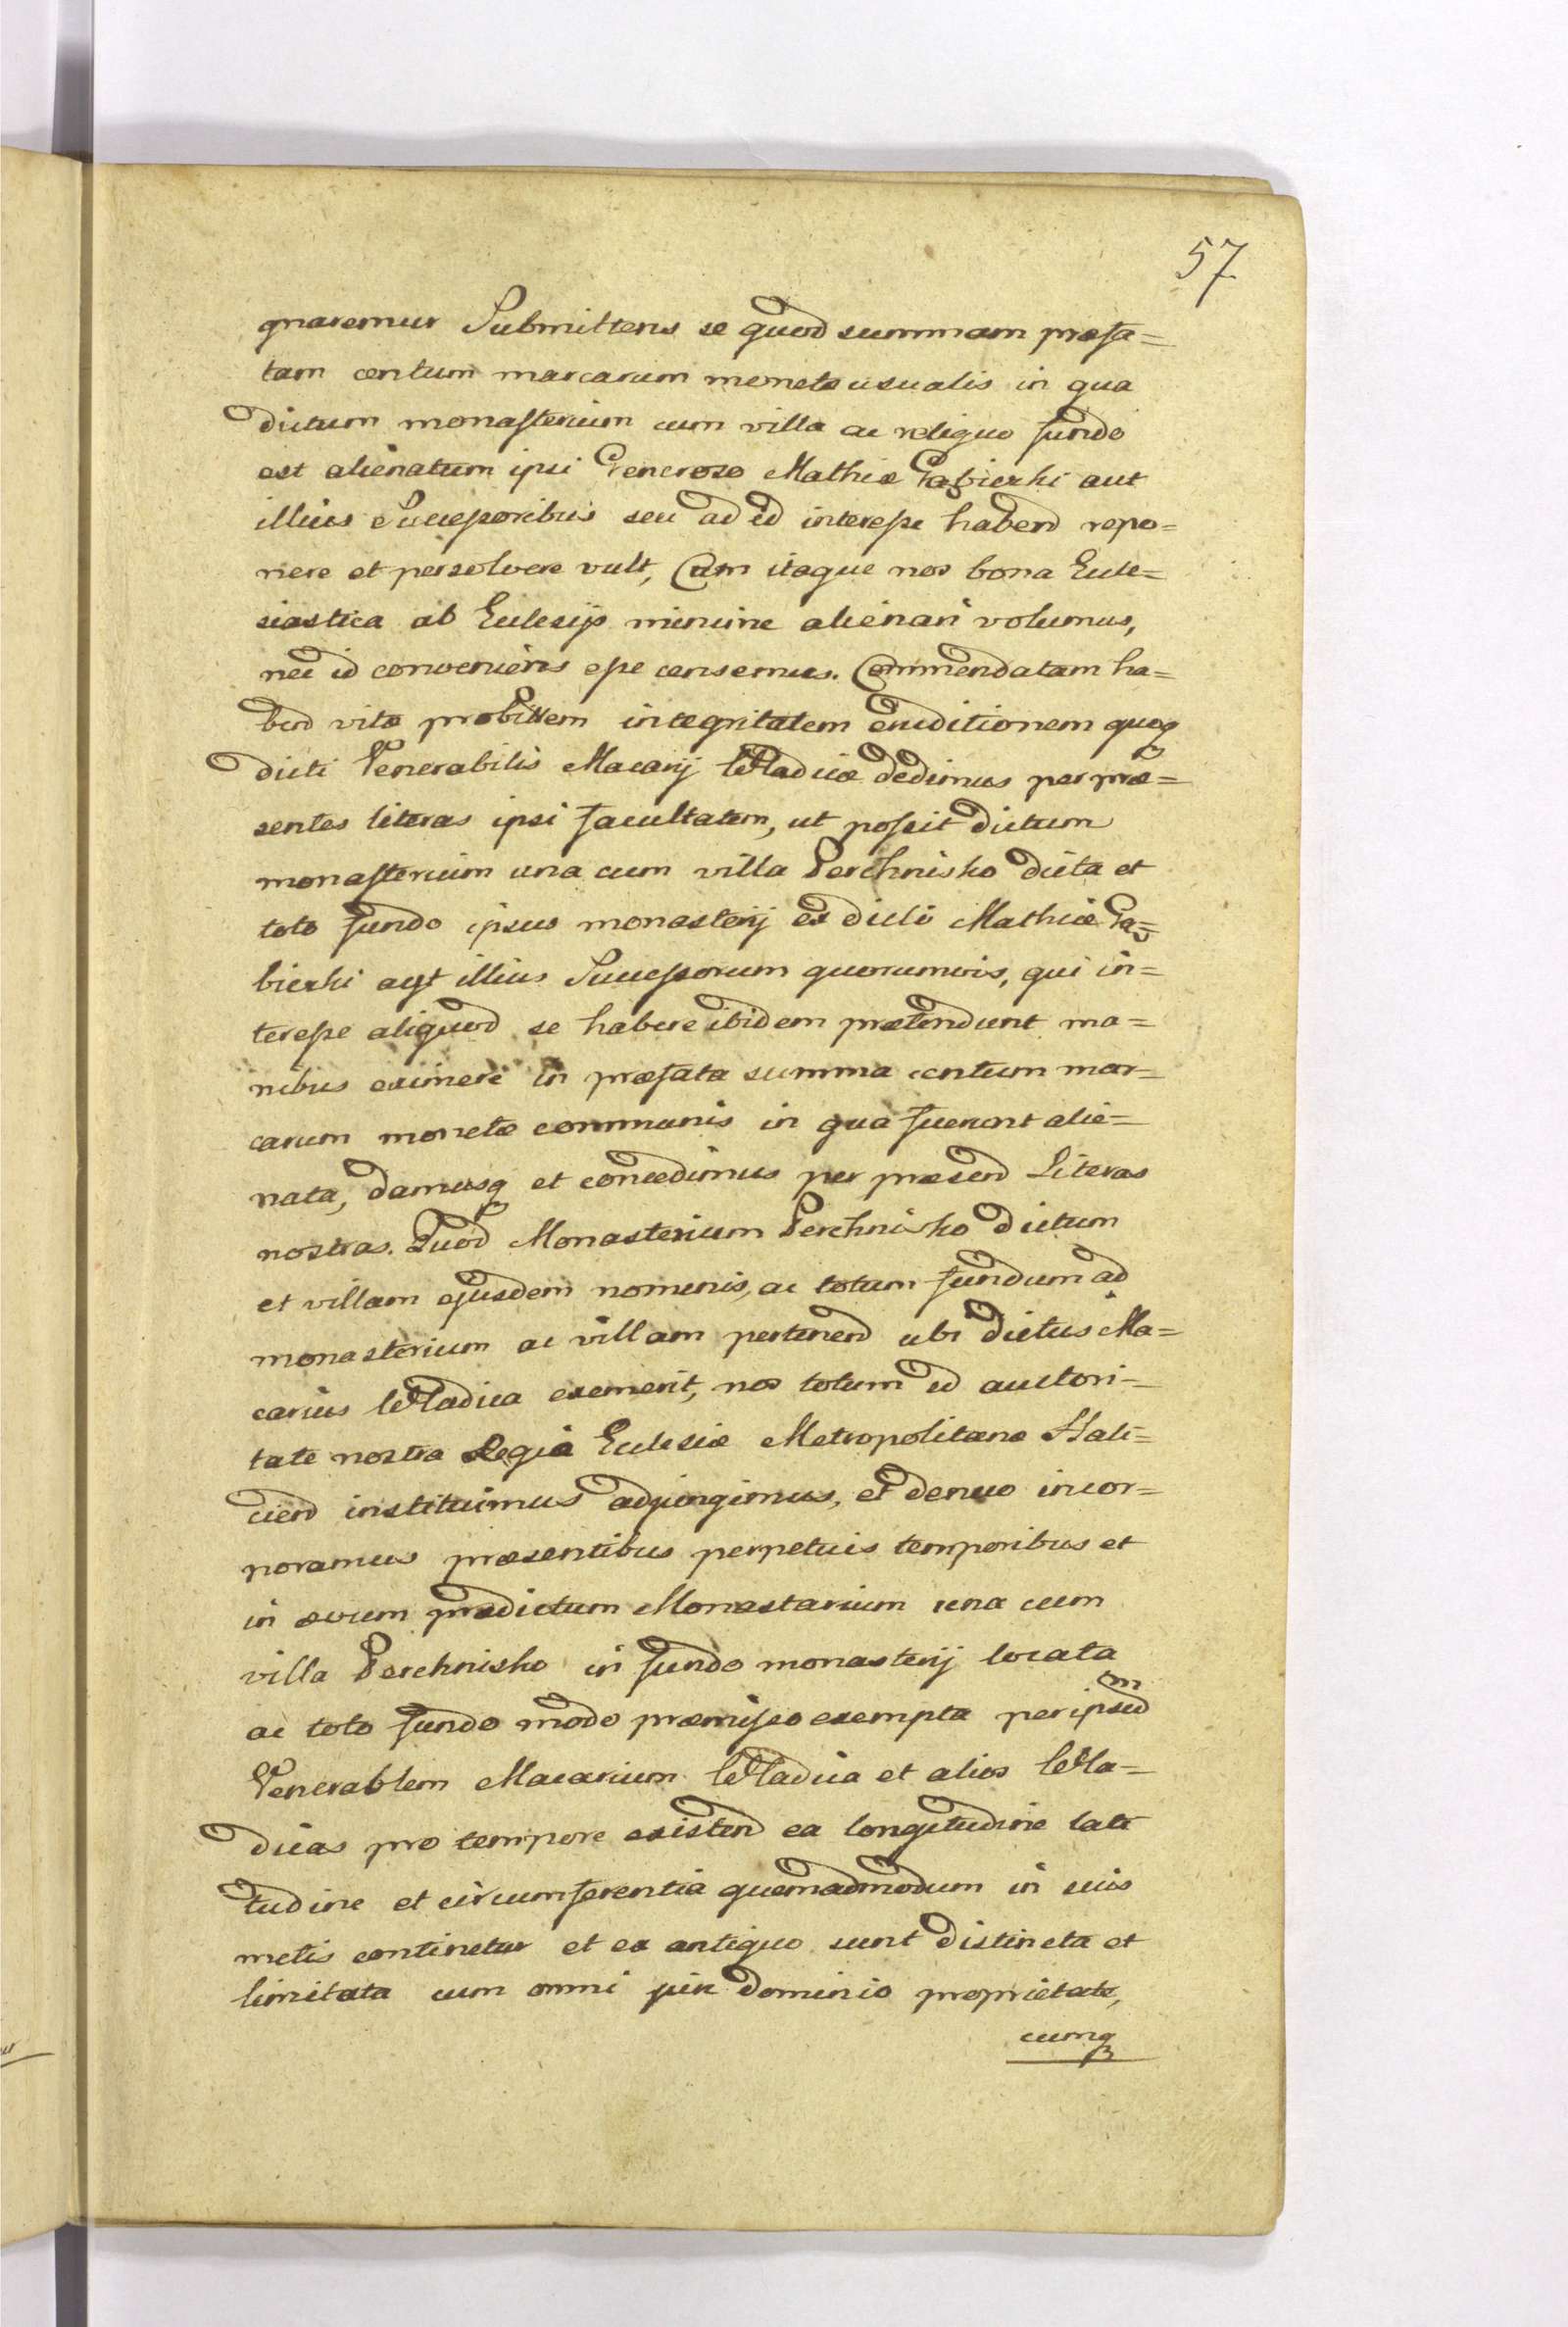 57
gnaremur Submittens se quod summam præfa=
tam centum marcarum monetæ usualis in qua
dictum monasterium cum villa ac reliquo fundo
est alienatum ipsi Generoso Mathiæ Gąbierki aut
illius Successoribus seu ad id interesse habend repo=
nere et persolvere vult, Cum itaque nos bona Eccle=
siastica ab Eclesijs minime alienari volumus,
nec id conveniens esse censemus. Commendatam ha=
bend vitæ probittem integritatem eruditionem quoq
dicti Venerabilis Macarij Wladicæ dedimus per præ=
sentes literas ipsi facultatem, ut possit dictum
monasterium una cum villa Perehnisko dicta et
toto fundo ipsius monasterij ex dicti Mathiæ Gą=
bierki aut illius Successorum quorumvis, qui in=
teresse aliquod se habere ibidem prætendunt ma=
nibus eximere in præfata summa centum mar=
carum monetæ communis in qua fuerunt alie=
nata, damusq et concedimus per præsend Literas
nostras. Quod Monasterium Perehnisko dictum
et villam ejusdem nominis, ac totum fundum ad
monasterium ac villam pertinend ubi dictus Ma=
carius Wladica exemerit, nos totum id auctori=
tate nostra Regia Eclesiæ Metropolitanæ Hali=
ciend instituimus adjungimus, et denuo incor=
poramus præsentibus perpetuis temporibus et
in ævum prædictum Monastarium una cum
villa Perehnisko in fundo monasterij locata
ac toto fundo modo præmisso exempta per ipsud m
Venerablem Macarium Wladica et alios Wla=
dicas pro tempore existend ea longitudine lati
tudine et circumferentia quemadmodum in suis
metis continetur et ex antiquo sunt distincta et
limitata cum omni jure dominio proprietate,
cumq